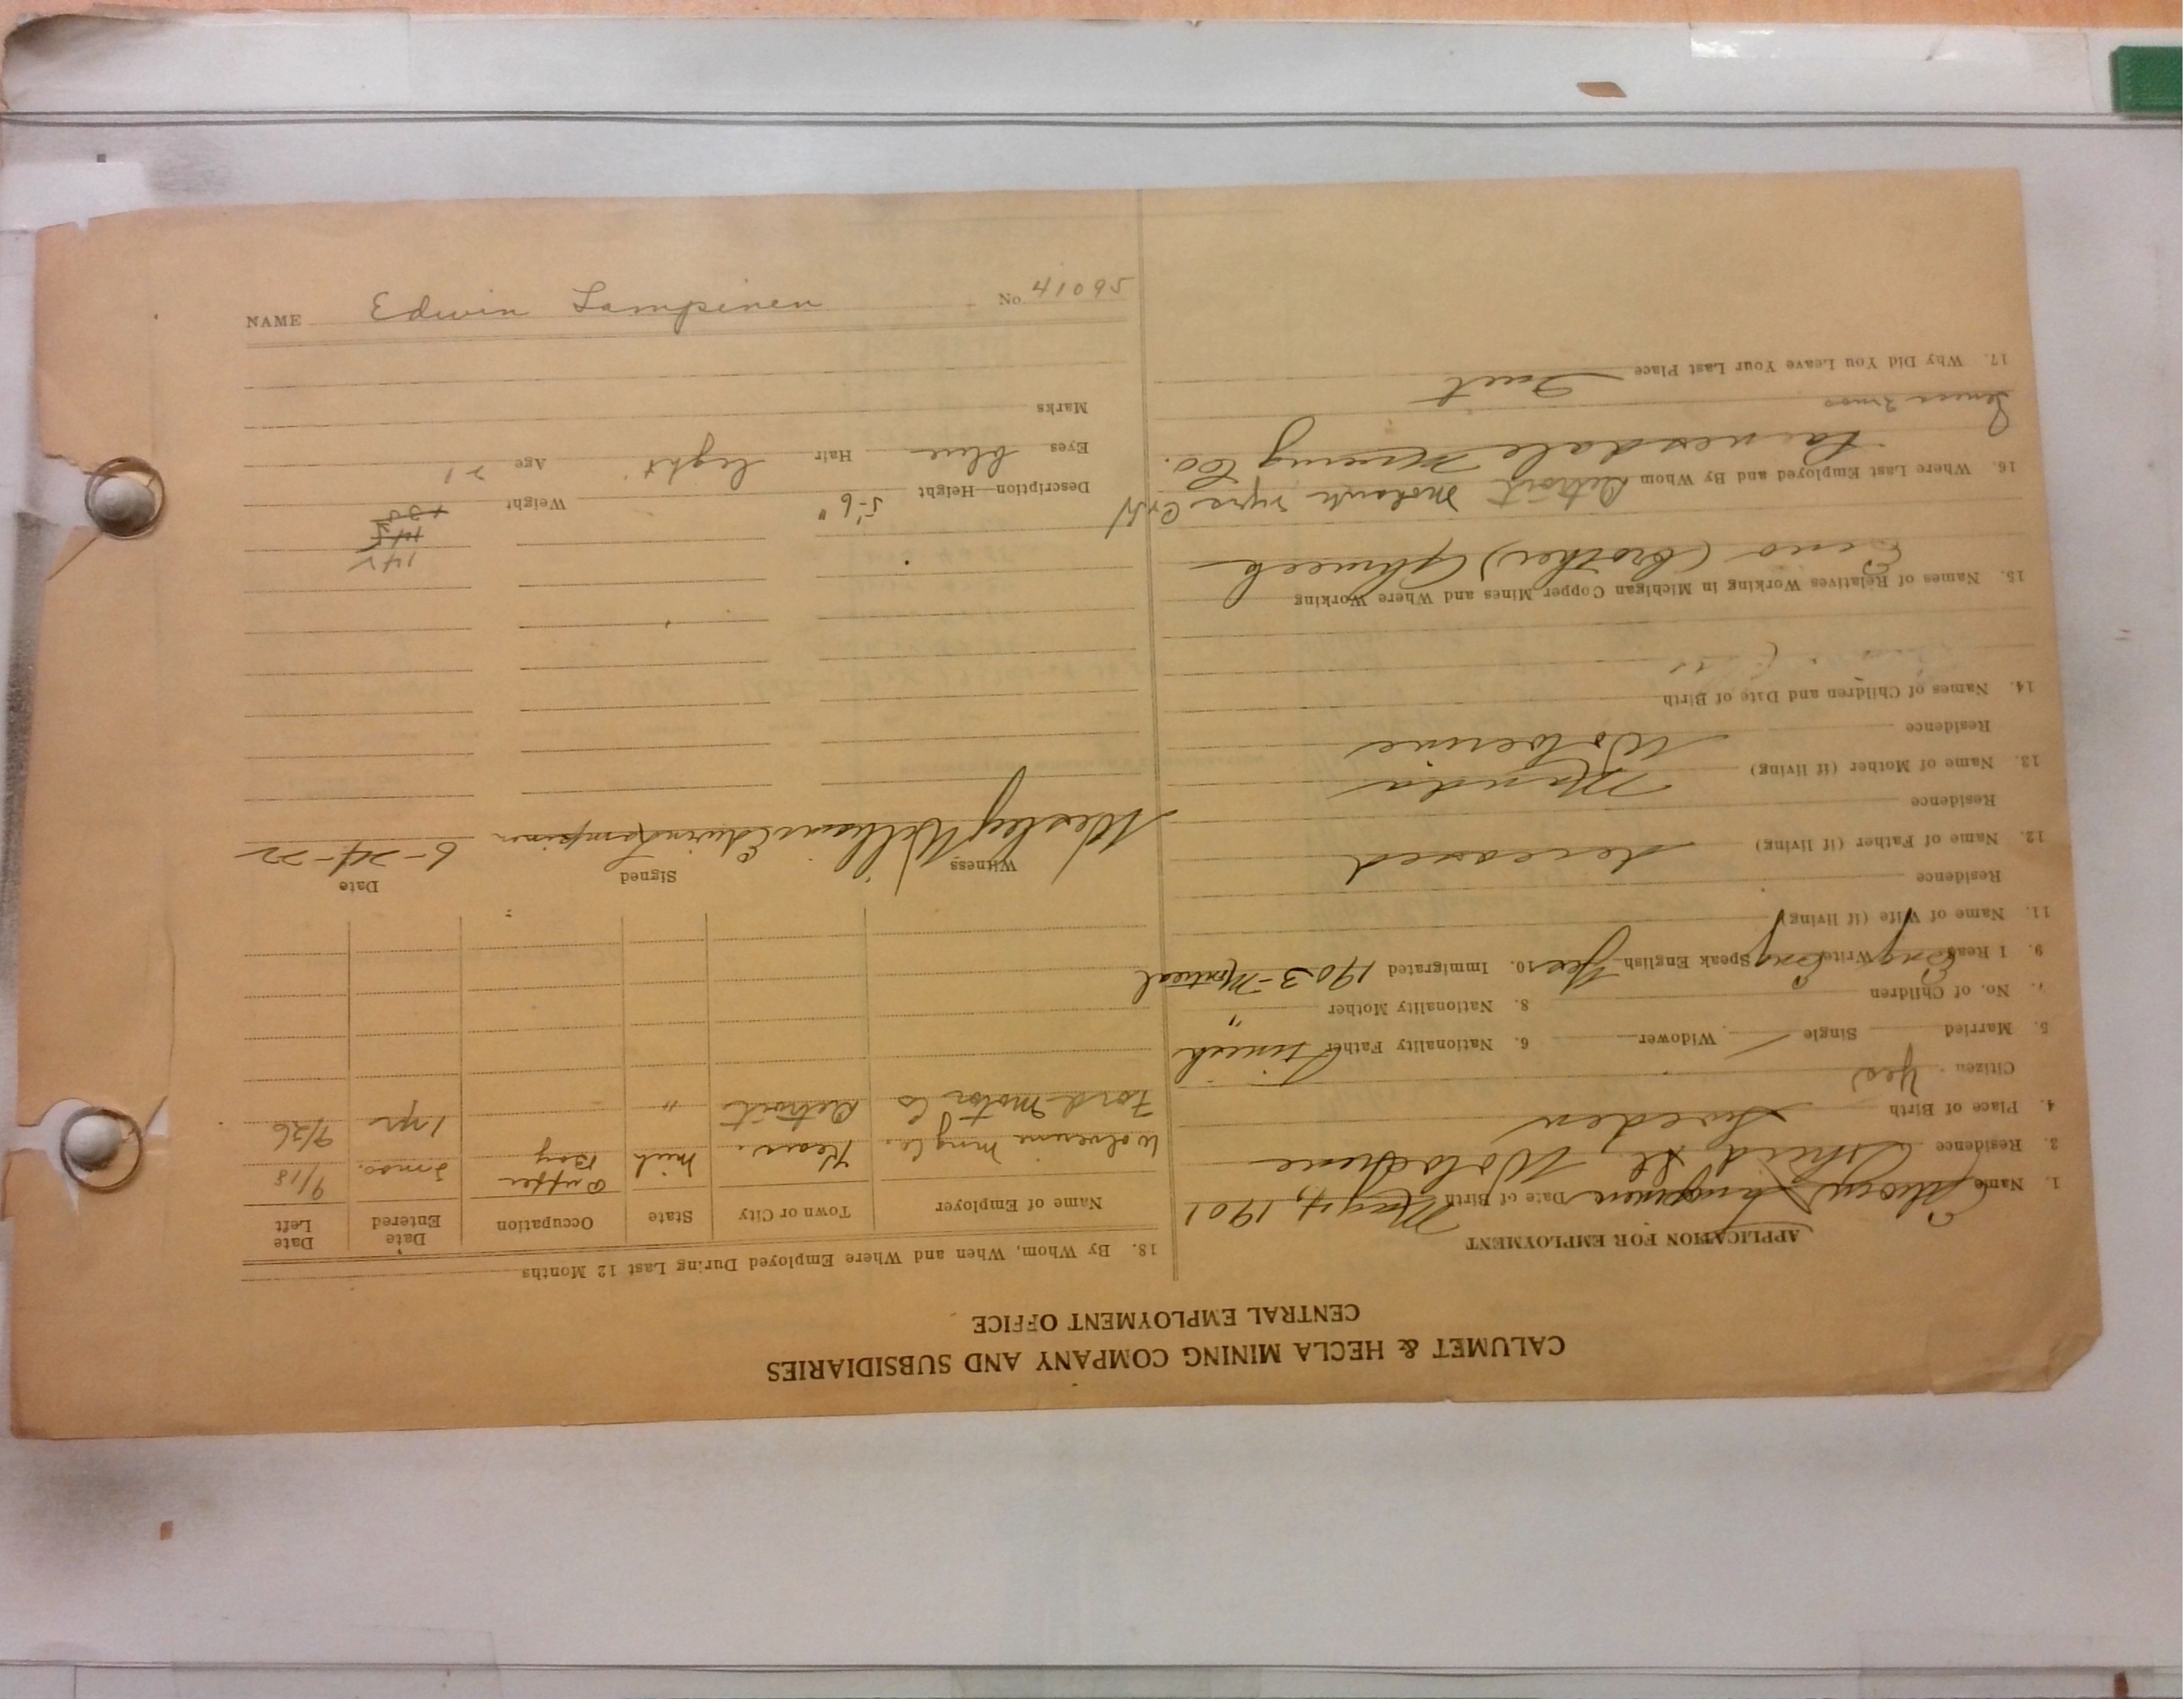 CALUMET & HECLA MINING COMPANY AND SUBSIDIARIES
CENTRAL EMPLOYMENT OFFICE
APPLICATION FOR EMPLOYMENT
1. Name Edwin Lampinen Date of Birth May 4, 1901
2. Residence St. Wolverine
4. Place of Birth Sweden
Citizen Yes
5. Married Single / Widower 6. Nationality Father Finnish
7. No. of Children 8. Nationality Mother "
9. I Read Eng Write Eng Speak English Yes 10. Immigrated 1903-Montreal
11. Name of Wife (if living)
Residence
12. Name of Father (if living) deceased
Residence
13. Name of Mother (if living) Manda
Residence Wolverine
14. Names of Children and Date of Birth
15. Names of Relatives Working in Michigan Copper Mines and Where Working
Eino (brother) Ahmeek
16. Where Last Employed and By Whom Detroit
Painesdale Mining Co.
17. Why Did You Leave Your Last Place Quit
18. By Whom, When and Where Employed During Last 12 Months
Name of Employer Town or City State Occupation Date Entered Date Left
Wolverine Mng Co. Kears. Mich Boy 3 mos. 9/18
Ford Motor Co Detroit " 1 yr 9/26
Witness Signed Date
Wesley Williams Edwin Lampinen 6-24-22
142
145
135
Description—Height 5-6" Weight
Eyes blue Hair light Age 21
Marks
NAME Edwin Lampinen No. 41095